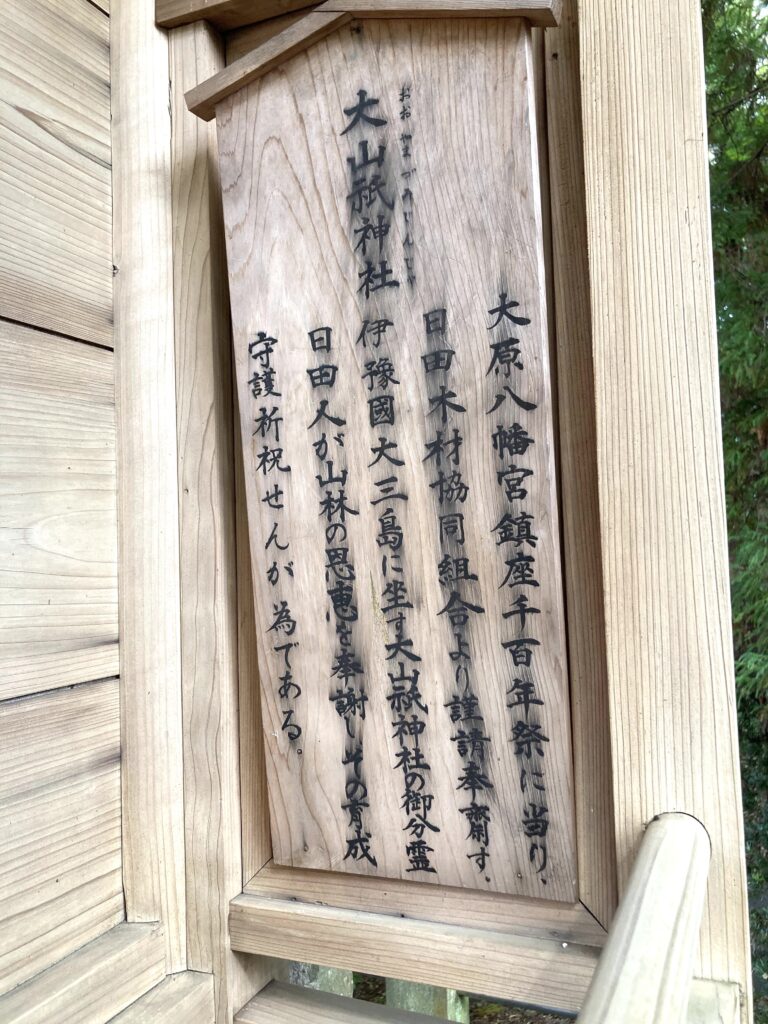 おおやまづみじんじゃ
大山祇神社
大原八幡宮鎮座千百年祭に当り、
日田木材協同組合より謹請奉齋す。
伊豫國大三島に坐す大山祇神社の御分霊
日田人が山林の恩恵を奉謝しその育成
守護祈祝せんが為である。